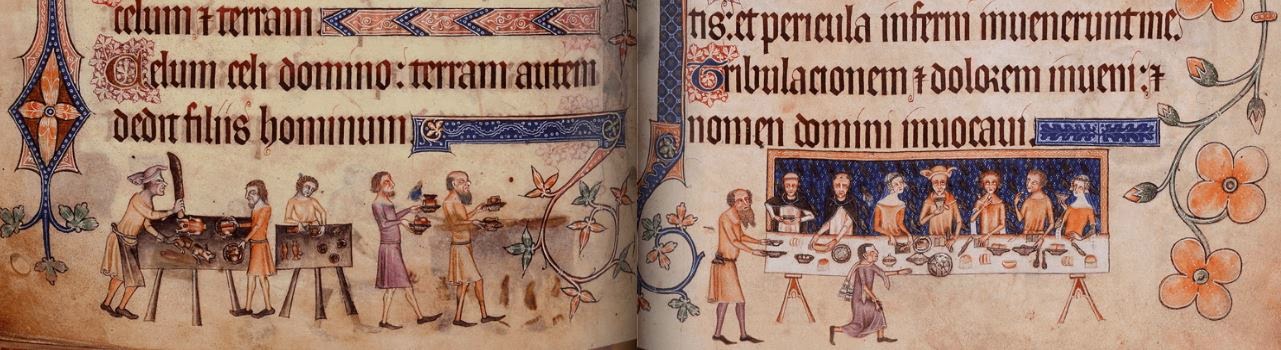 celum ⁊ terram.
Celum celi domino: terram autem
dedit filiis hominum
tis: et pericula inferni inuenerunt me.
Tribulacionem ⁊ dolorem inueni: ⁊
nomen domini inuocaui